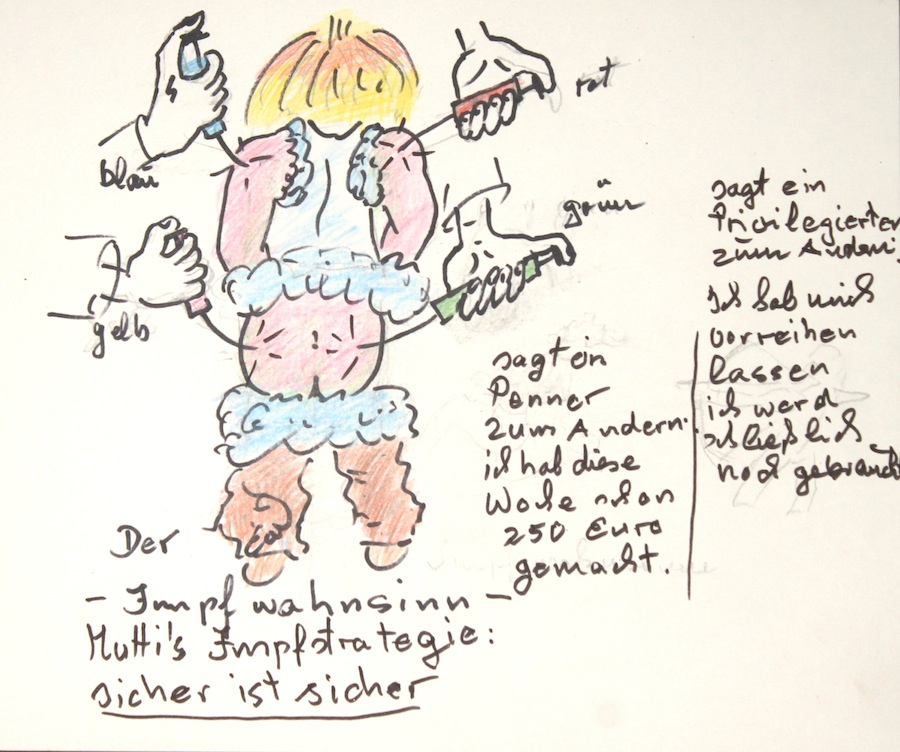 blau
rot
gelb
grün
Der
- Impfwahnsinn -
Mutti's Impfstrategie:
sicher ist sicher
sagt ein
Penner
zum Andern:
ich hab diese
Woche schon
250 Euro
gemacht.
sagt ein
Privilegierter
zum Andern:
Ich hab mich
vorreihen
lassen
ich werd
schließlich
noch gebraucht